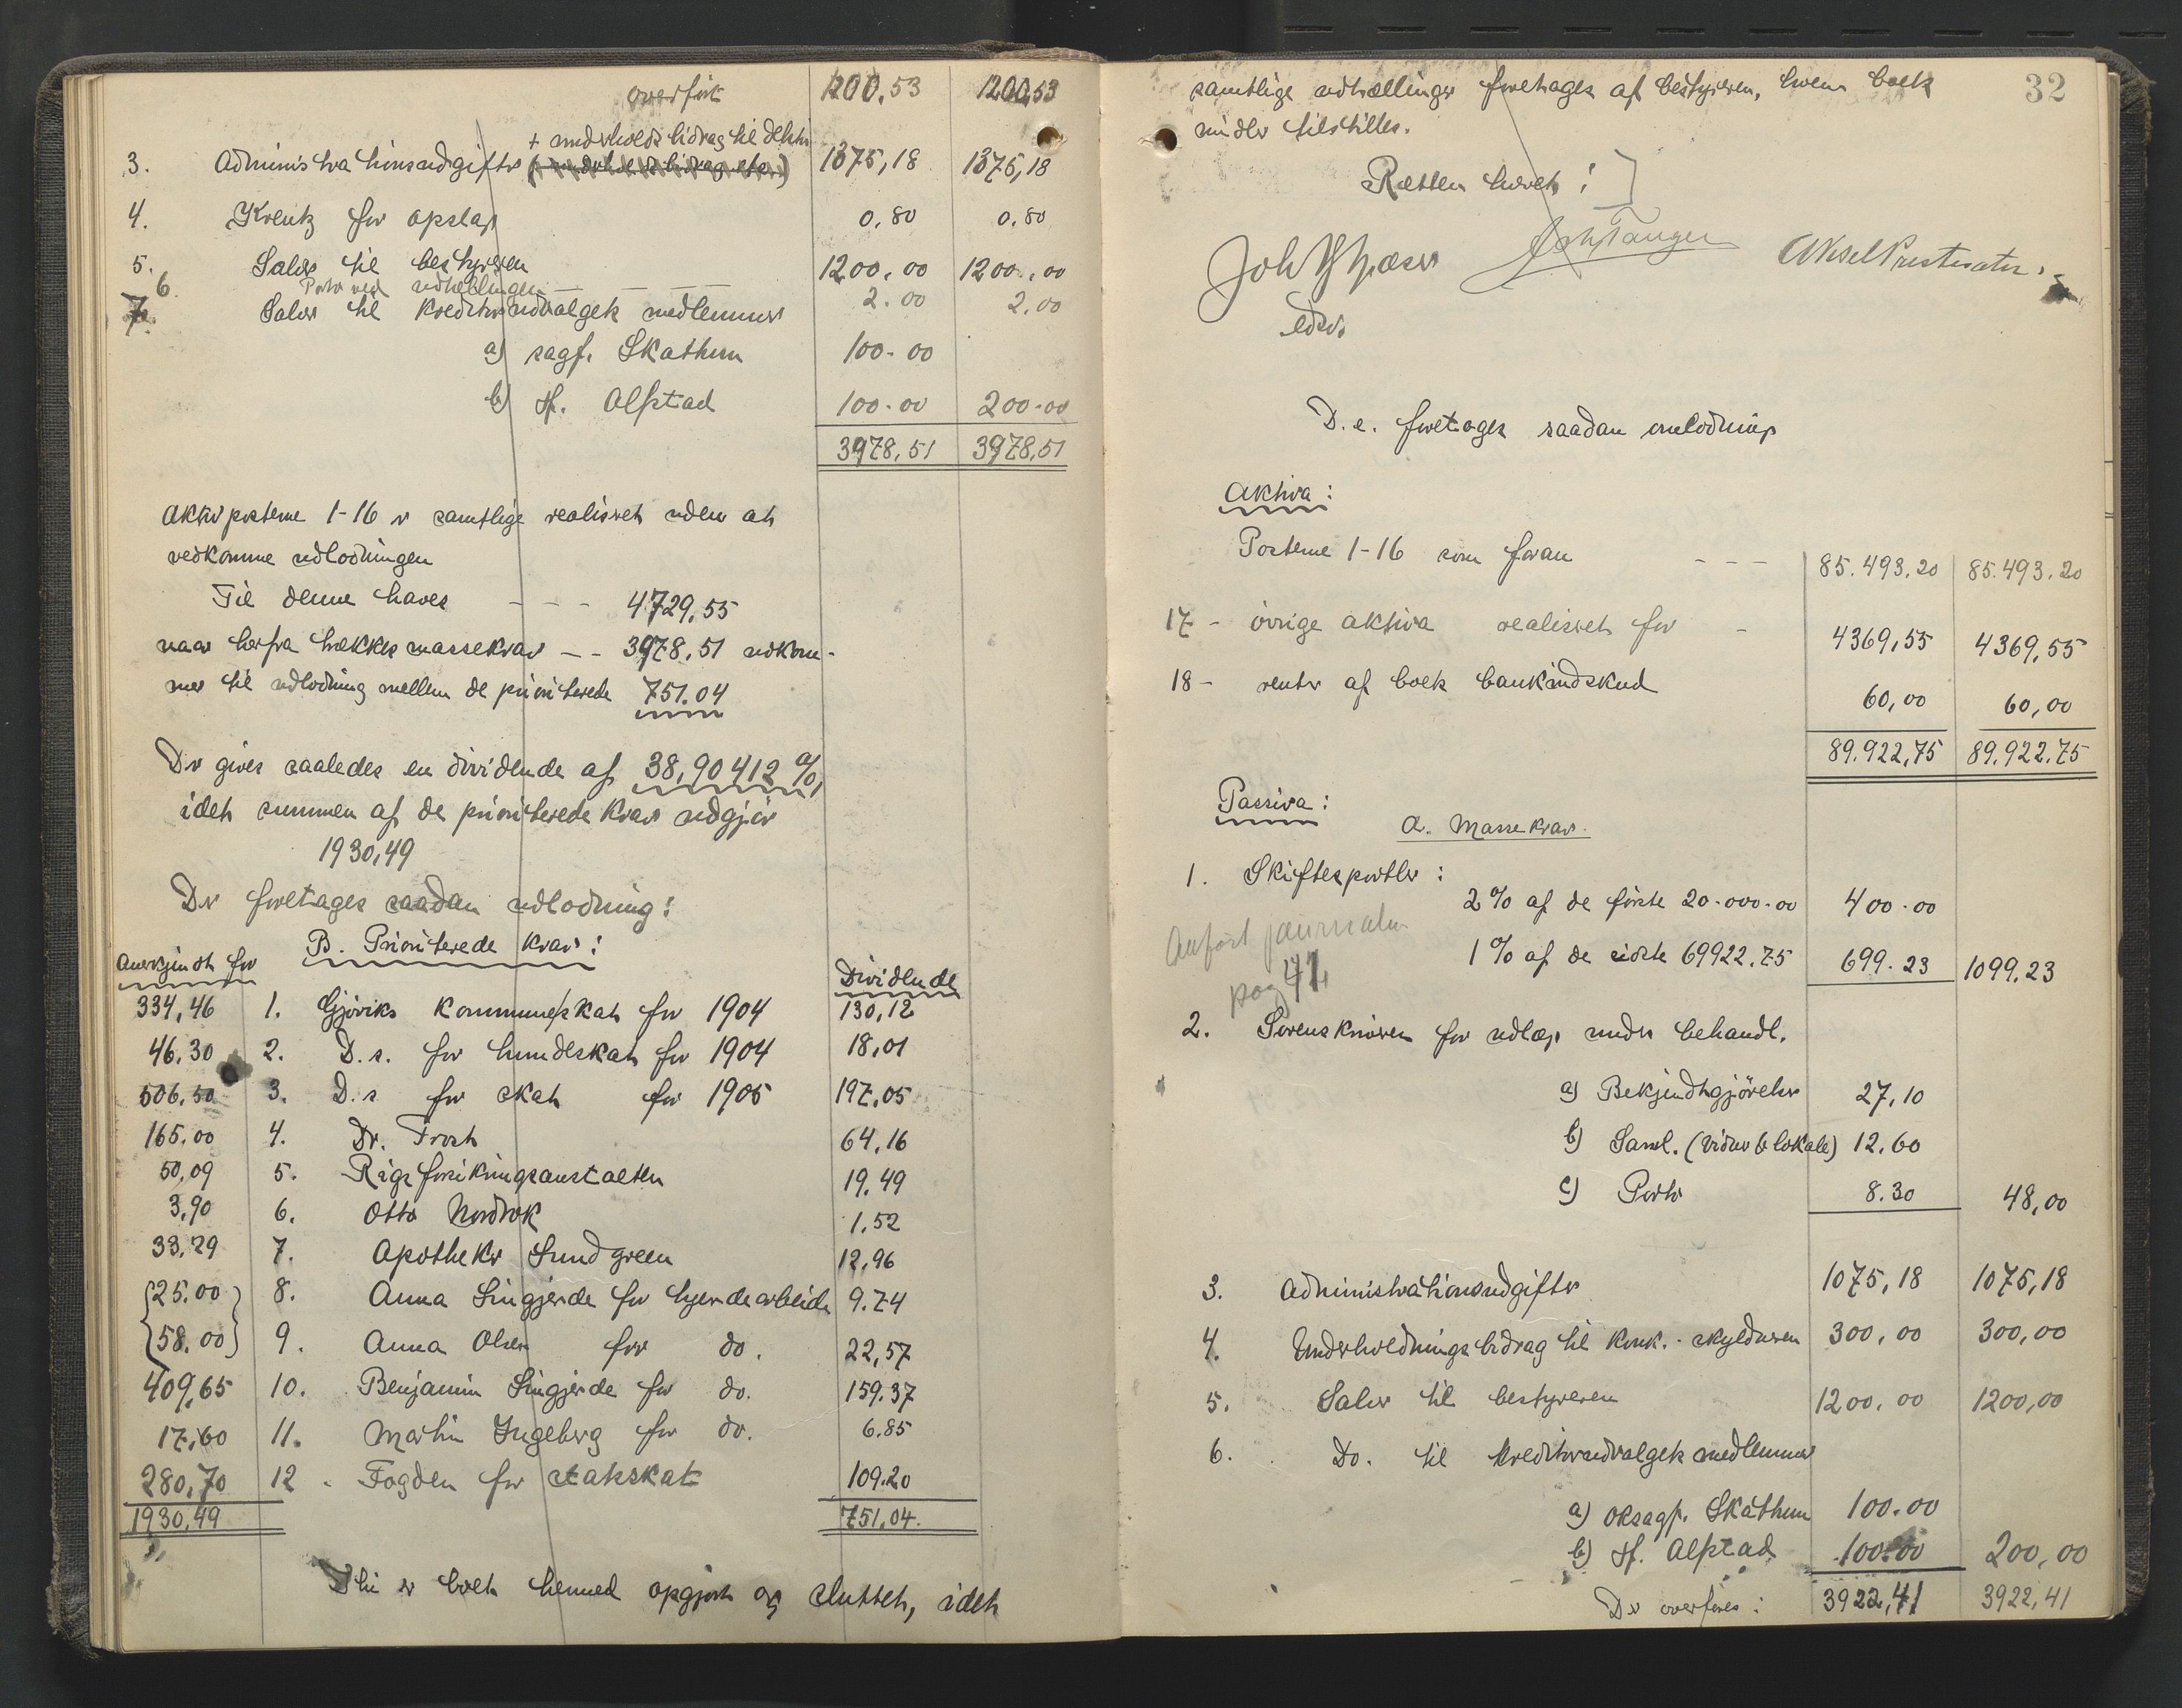 overført 1200,53 1200,53
+ underholdsbidrag til debitor
3. Administrationsudgifter (+ underholdsbidrag etc.) 1375,18 1375,18
4. Kreutz for opslag 0.80 0.80
5. Salær til bestyreren 1200,00 1200,00
6. Porto ved udhællingen — — — — 2.00 2,00
7. Salær til kreditorudvalgets medlemmer
a) sagf. Skathum 100.00
b) sf. Alfstad 100.00 200.00
3978,51 3978,51
Aktivposterne 1-16 er samtlige realiseret uden at
vedkomme udlodningen
Til denne haves - - - 4729,55
naar herfra trækkes massekrav - - 3978,51 udkom-
mer til udlodning mellem de prioriterede 751.04
Der gives saaledes en dividende af 38,90412 %,
idet summen af de prioriterede krav udgjør
1930,49
Der foretages saadan udlodning:
Anerkjendt for B. Prioriterede krav: Dividende
334,46 1. Gjøviks kommuneskat for 1904 130,12
46.30 2. D.s. for hundeskat for 1904 18,01
506.50 3. D.s for skat for 1905 197,05
165.00 4. Dr. Frost 64,16
50,09 5. Rigsforsikringsanstalten 19,49
3,90 6. Otto Nordvok 1,52
33,29 7. Apotheker Lundgreen 12,96
25.00 8. Anna Lingjerde for tyendearbeide 9.74
58.00 9. Anna Olsen for do. 22,57
409,65 10. Benjamin Lingjerde for do. 159.37
17,60 11. Martin Ingeberg for do. 6.85
280,70 12. Fogden for statsskat 109.20
1930,49 751,04.
Thi er boet hermed opgjort og sluttet, idet
32
samtlige udhællinger foretages af bestyreren, hvem boets
midler tilstilles.
Retten hævet:
Joh Thjæser
edsv.
Aksel Prestesater.
D.e. foretages saadan omlodning
Aktiva:
Posterne 1-16 som foran - - - 85.493.20 85.493.20
17 - øvrige aktiva realiseret for - 4369,55 4369,55
18 - renter af boets bankindskud 60,00 60,00
89.922,75 89.922.75
Passiva:
A. Massekrav.
1. Skiftesportler:
2% af de første 20.000.00 400.00
Anført journalen
1% af de sidste 69922.75 699.23 1099.23
pag 41
2. Sorenskriveren for udlæg under behandl.
a) Bekjendtgjørelser 27,10
b) Saml. (vidner & lokale) 12.60
c) Porto 8.30 48,00
3. Administrationsudgifter 1075,18 1075,18
4. Underholdningsbidrag til konk.-skyldneren 300,00 300,00
5. Salær til bestyreren 1200.00 1200,00
6. Do. til kreditorudvalgets medlemmer
a) oksagf. Skathum 100.00
b) sf. Alfstad 100.00 200,00
Der overføres: 3922,41 3922,41